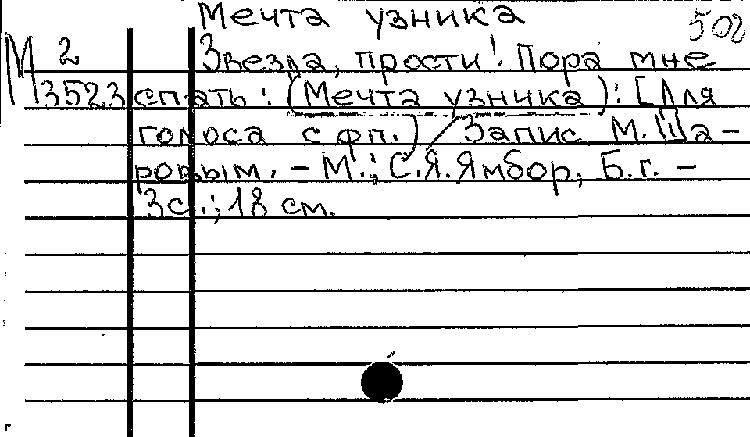 Мечта узника
502
М 2
3523
Звезда, прости! Пора мне
спать: (Мечта узника): [Для
голоса с фп.] / Запис. М. Ша-
ровым. – М.: С.Я. Ямбор, Б.г. –
3 с.; 18 см.